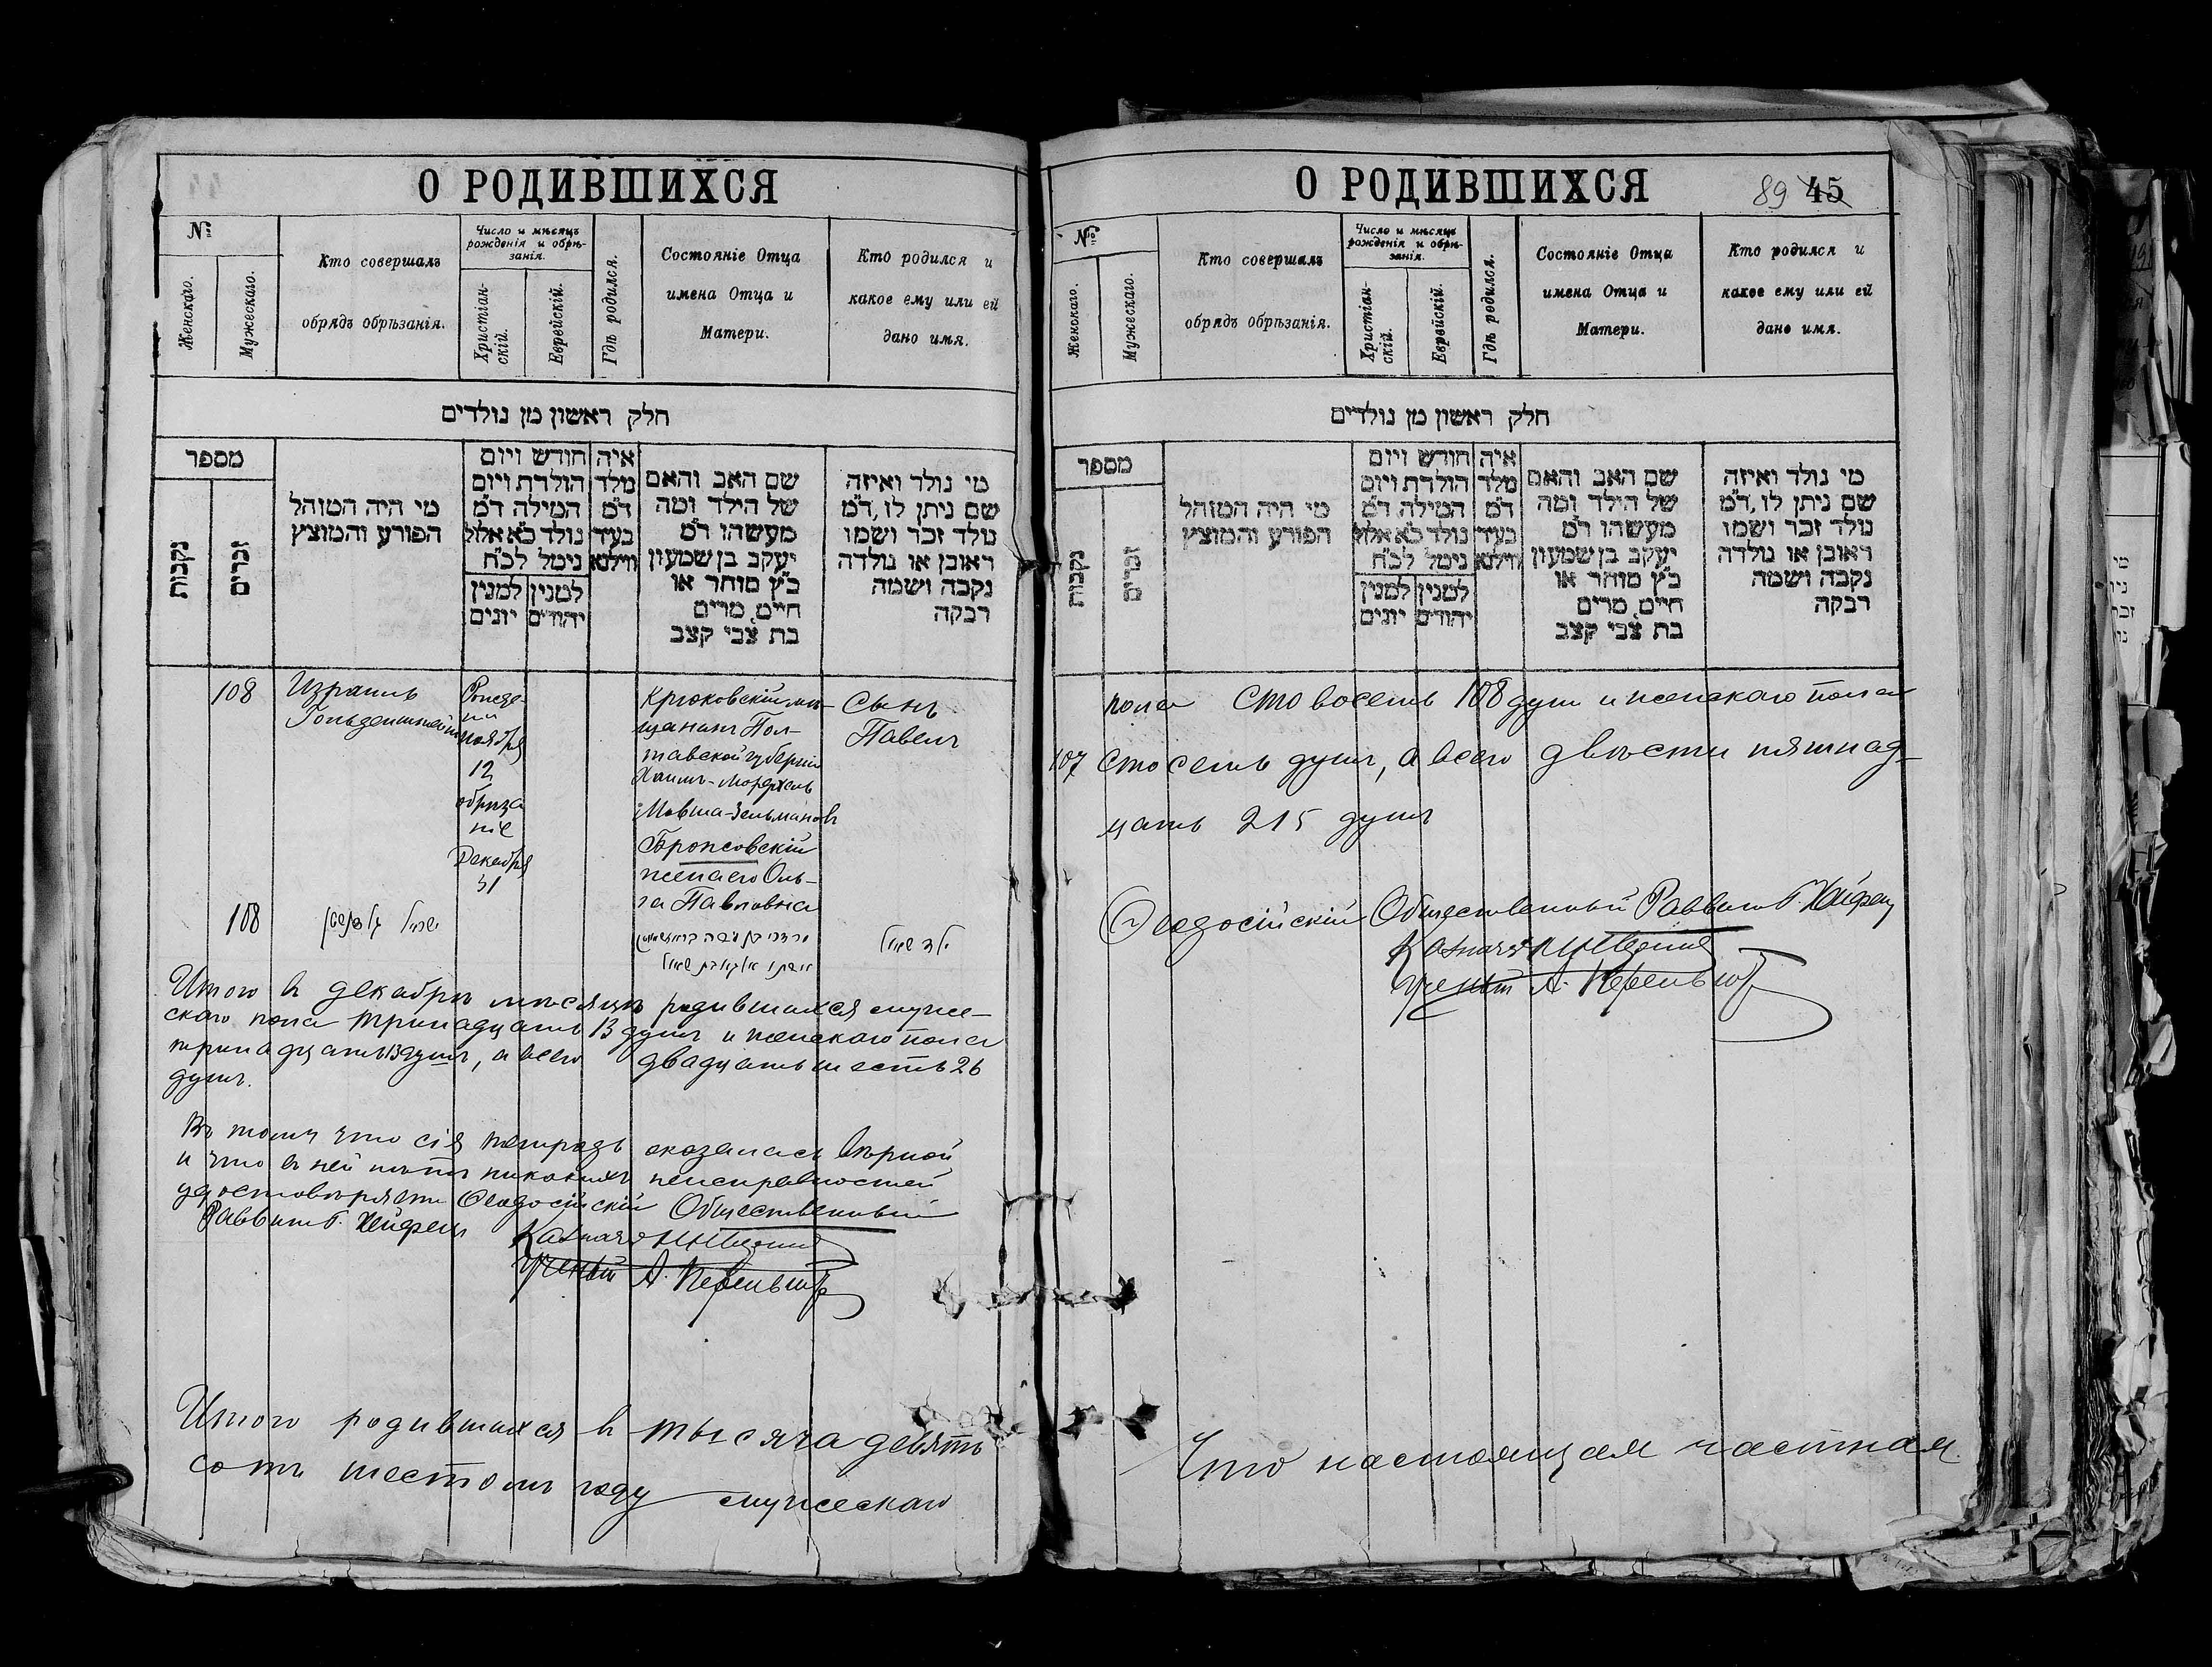 О РОДИВШИХСЯ
№
Женскаго.
Мужескаго.
Кто совершалъ
обрядъ обрѣзанія.
Число и мѣсяцъ
рожденія и обрѣ-
занія.
Христіан-
скій.
Еврейскій.
Гдѣ родился.
Состояніе Отца
имена Отца и
Матери.
Кто родился и
какое ему или ей
дано имя.
חלק ראשון מן נולדים
מספר
נקבות
זכרים
מי היה המוהל
הפורע והמוצץ
חודש ויום
הולדת ויום
המילה ד״מ
נולד כ״א אלול
נימל לכ״ח
למנין
יונים
למנין
יהודים
איה
מלד
ד״מ
בעיר
ווילנא
שם האב והאם
של הילד ומה
מעשהו ד״מ
יעקב בן שמעון
כ״ץ סוחר או
חיים, מרים
בת צבי קצב
מי נולד ואיזה
שם ניתן לו, ד״מ
נולד זכר ושמו
ראובן או נולדה
נקבה ושמה
רבקה
108
Израиль
Рожде-
ніе
ноября
12
обрѣза
ніе
Декабря
31
Крюковскій мѣ-
щанинъ Пол-
тавской губерніи
Хаимъ-Мордхель
Мовша-Зельмановъ
жена его Оль-
га Павловна
Сынъ
Павелъ
108
ילד
Итого въ декабрѣ мѣсяцѣ родившихся муже-
скаго пола тринадцать 13 душъ и женскаго пола
тринадцать 13 душъ, а всего двадцать шесть 26
душъ.
Въ томъ что сія тетрадь оказалась вѣрной
и что въ ней нѣтъ никакихъ неисправностей
удостовѣряетъ Ѳеодосійскій Общественный
Раввинъ Г. Хейфецъ
Казначей
Ученый А.
Итого родившихся въ тысяча девять
сотъ шестомъ году мужескаго
О РОДИВШИХСЯ
89 45
№
Женскаго.
Мужескаго.
Кто совершалъ
обрядъ обрѣзанія.
Число и мѣсяцъ
рожденія и обрѣ-
занія.
Христіан-
скій.
Еврейскій.
Гдѣ родился.
Состояніе Отца
имена Отца и
Матери.
Кто родился и
какое ему или ей
дано имя.
חלק ראשון מן נולדים
מספר
נקבות
זכרים
מי היה המוהל
הפורע והמוצץ
חודש ויום
הולדת ויום
המילה ד״מ
נולד כ״א אלול
נימל לכ״ח
למנין
יונים
למנין
יהודים
איה
מלד
ד״מ
בעיר
ווילנא
שם האב והאם
של הילד ומה
מעשהו ד״מ
יעקב בן שמעון
כ״ץ סוחר או
חיים, מרים
בת צבי קצב
מי נולד ואיזה
שם ניתן לו, ד״מ
נולד זכר ושמו
ראובן או נולדה
נקבה ושמה
רבקה
пола сто восемь 108 душъ и женскаго пола
107 сто семь душъ, а всего двѣсти пятнад-
цать 215 душъ
Ѳеодосійскій Общественный Раввинъ Г. Хейфецъ
Казначей
Ученый А.
Что настоящая частная